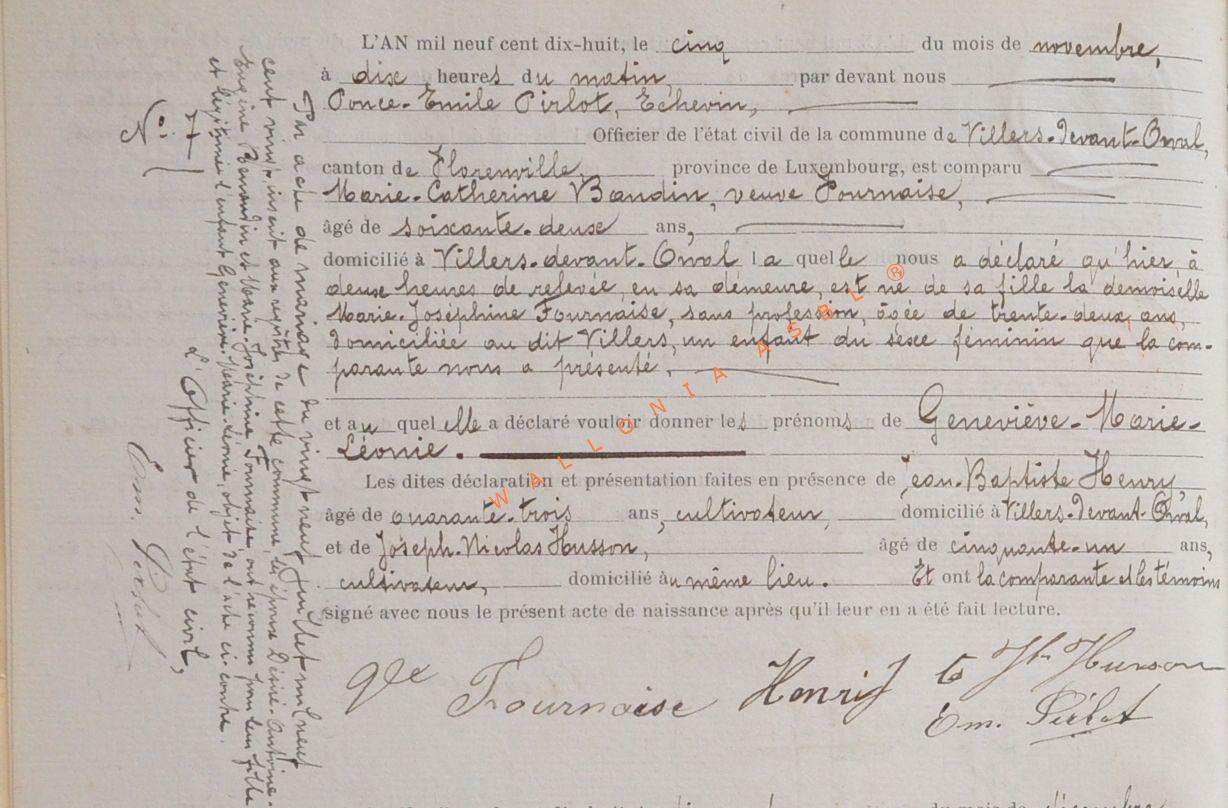 L'AN mil neuf cent dix-huit, le cinq du mois de novembre,
à dix heures du matin, par devant nous
Ponce-Emile Pirlot, Echevin,
Officier de l'état civil de la commune de Villers-devant-Orval,
canton de Florenville, province de Luxembourg, est comparu
Marie-Catherine Baudin, veuve Fournaise,
âgé de soixante-deux ans,
domicilié à Villers-devant-Orval la quelle nous a déclaré qu'hier, à
deux heures de relevée, en sa demeure, est né de sa fille la demoiselle
Marie-Joséphine Fournaise, sans profession, âgée de trente-deux ans,
domiciliée au dit Villers, un enfant du sexe féminin que la com-
parante nous a présenté,
et au quel elle a déclaré vouloir donner les prénoms de Geneviève-Marie-
Léonie.
Les dites déclaration et présentation faites en présence de Jean-Baptiste Henry,
âgé de quarante-trois ans, cultivateur, domicilié à Villers-devant-Orval,
et de Joseph-Nicolas Husson, âgé de cinquante-un ans,
cultivateur, domicilié au même lieu. Et ont la comparante et les témoins
signé avec nous le présent acte de naissance après qu'il leur en a été fait lecture.
Vve Fournaise Henry J Jh Husson
Em. Pirlot
N° 7
Par acte de mariage du vingt neuf juillet mil neuf
cent vingt, inscrit aux registres de cette commune, les époux Désiré-Antoine-
Eugène et Marie-Joséphine Fournaise, ont reconnu pour leur fille
et légitimé l'enfant Geneviève-Marie-Léonie, objet de l'acte ci-contre.
L'Officier de l'état civil,
Em. Pirlot
WALLONIA ASBL ®